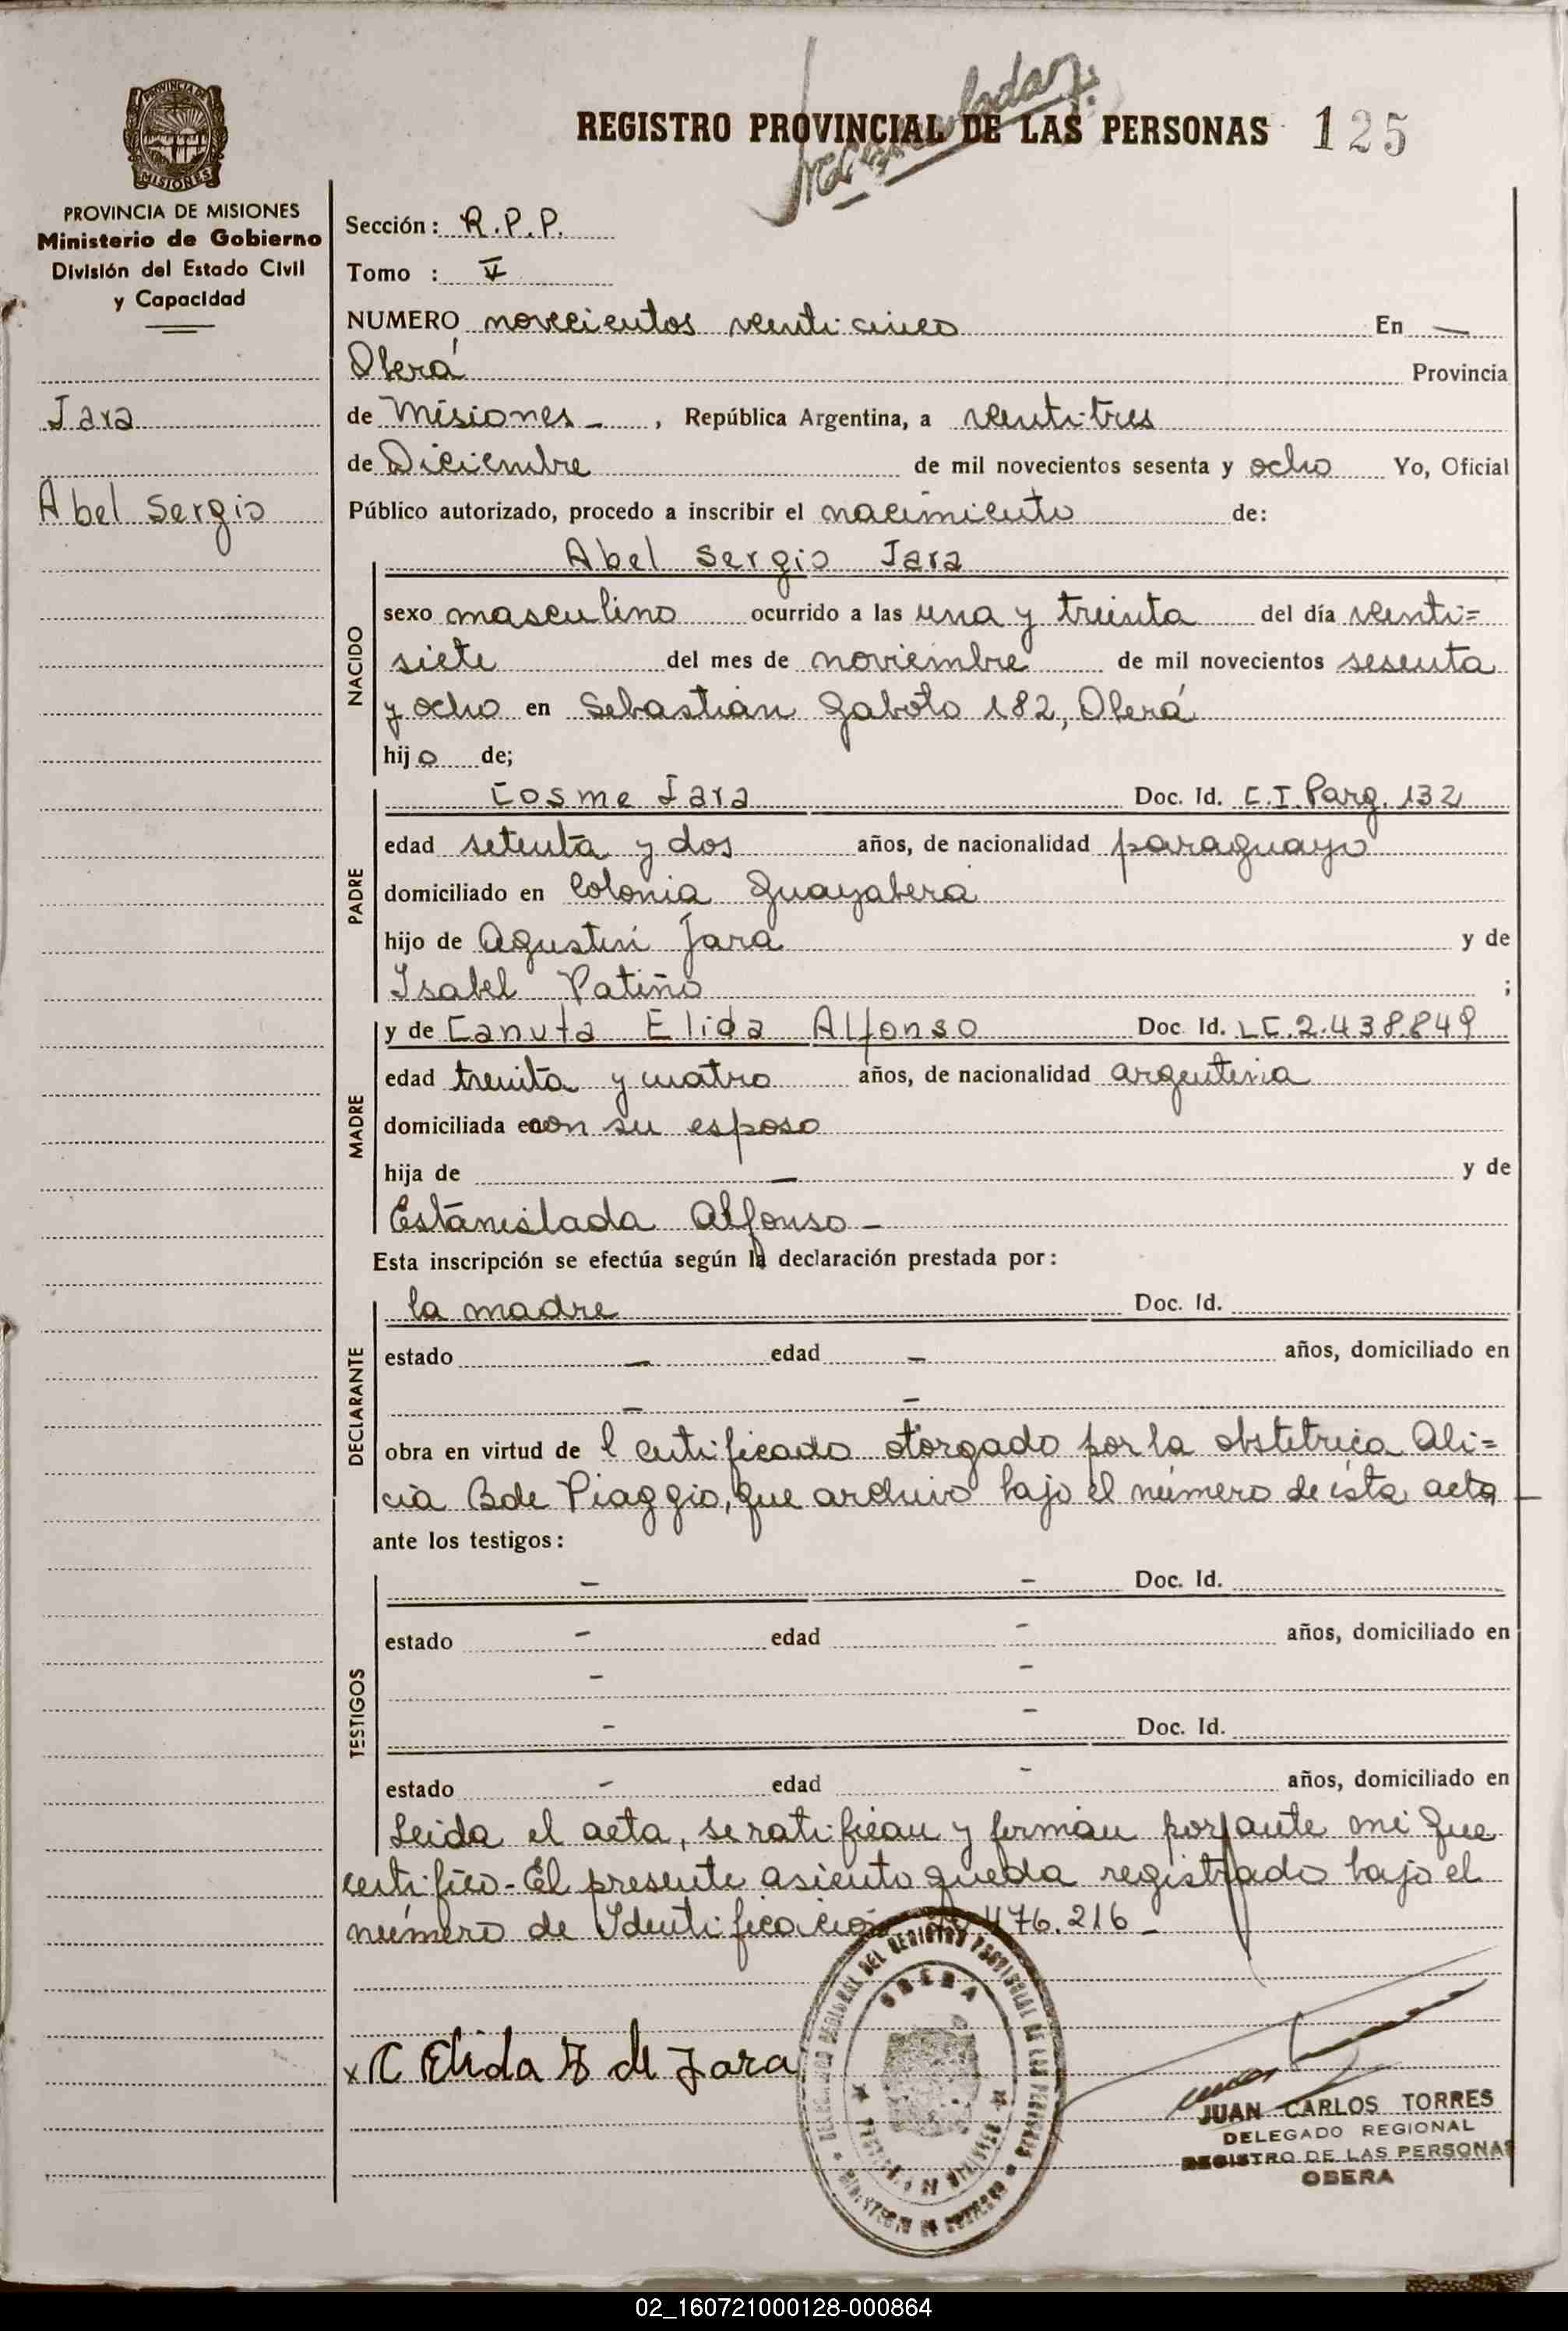 REGISTRO PROVINCIAL DE LAS PERSONAS 125
PROVINCIA DE
MISIONES
PROVINCIA DE MISIONES
Ministerio de Gobierno
División del Estado Civil
y Capacidad
Jara
Abel Sergio
Sección: R.P.P.
Tomo : V
NUMERO novecientos venticinco En —
Oberá Provincia
de Misiones - , República Argentina, a ventitres
de Diciembre de mil novecientos sesenta y ocho Yo, Oficial
Público autorizado, procedo a inscribir el nacimiento de:
NACIDO
Abel Sergio Jara
sexo masculino ocurrido a las una y treinta del día venti=
siete del mes de noviembre de mil novecientos sesenta
y ocho en Sebastián Gaboto 182, Oberá
hijo de;
PADRE
Cosme Jara Doc. Id. C.I. Parg. 132
edad setenta y dos años, de nacionalidad paraguayo
domiciliado en Colonia Guayabera
hijo de Agustín Jara y de
Isabel Patiño ;
MADRE
y de Canuta Elida Alfonso Doc. Id. LC. 2.438.849
edad treinta y cuatro años, de nacionalidad argentina
domiciliada con su esposo
hija de — y de
Estanislada Alfonso -
Esta inscripción se efectúa según la declaración prestada por:
DECLARANTE
la madre Doc. Id.
estado — edad — años, domiciliado en
— —
obra en virtud de l certificado otorgado por la obstetrica Ali=
cia B de Piaggio, que archivo bajo el número de ésta acta
ante los testigos:
TESTIGOS
- - Doc. Id.
estado - edad - años, domiciliado en
- -
- - Doc. Id.
estado - edad - años, domiciliado en
Leida el acta, se ratifican y firman por ante mi que
certifico - El presente asiento queda registrado bajo el
número de Identificación 476.216 -
x C Elida de Jara
OBERA
JUAN CARLOS TORRES
DELEGADO REGIONAL
REGISTRO DE LAS PERSONAS
OBERA
02_160721000128-000864